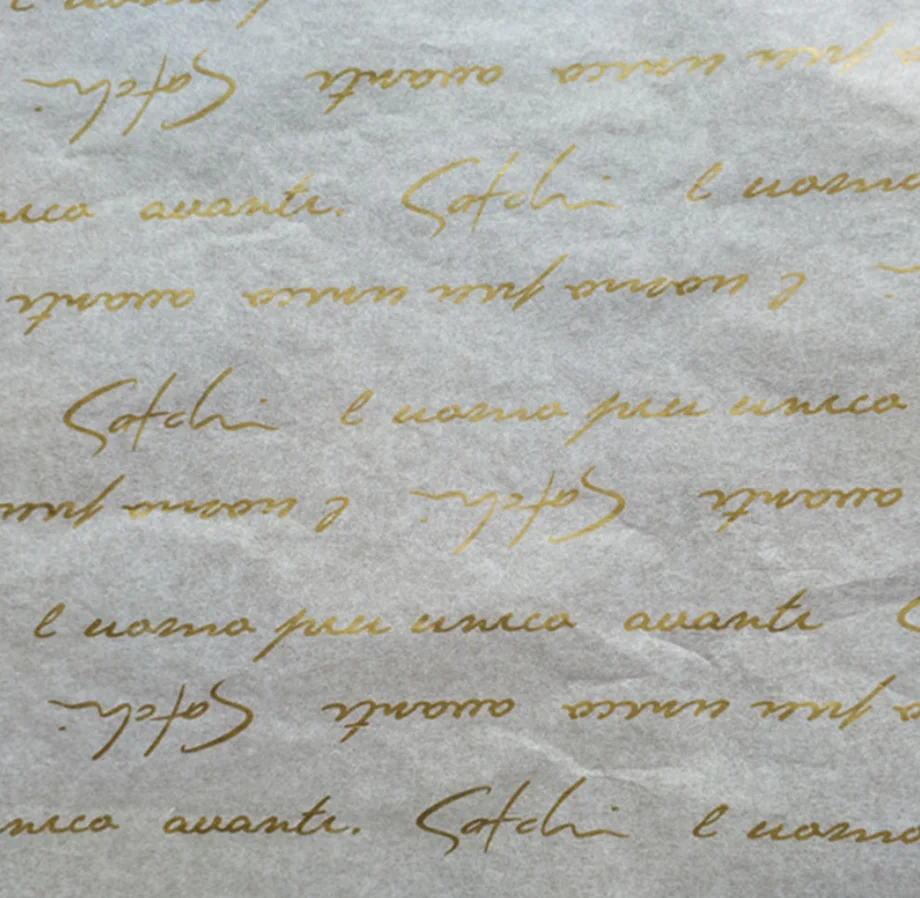 piu unico avanti Satchi
nico avanti. Satchi l uomo
l uomo piu unico avanti
Satchi l uomo piu unico
avanti Satchi l uomo piu
l uomo piu unico avanti S
o piu unico avanti Satchi
nico avanti. Satchi l uomo